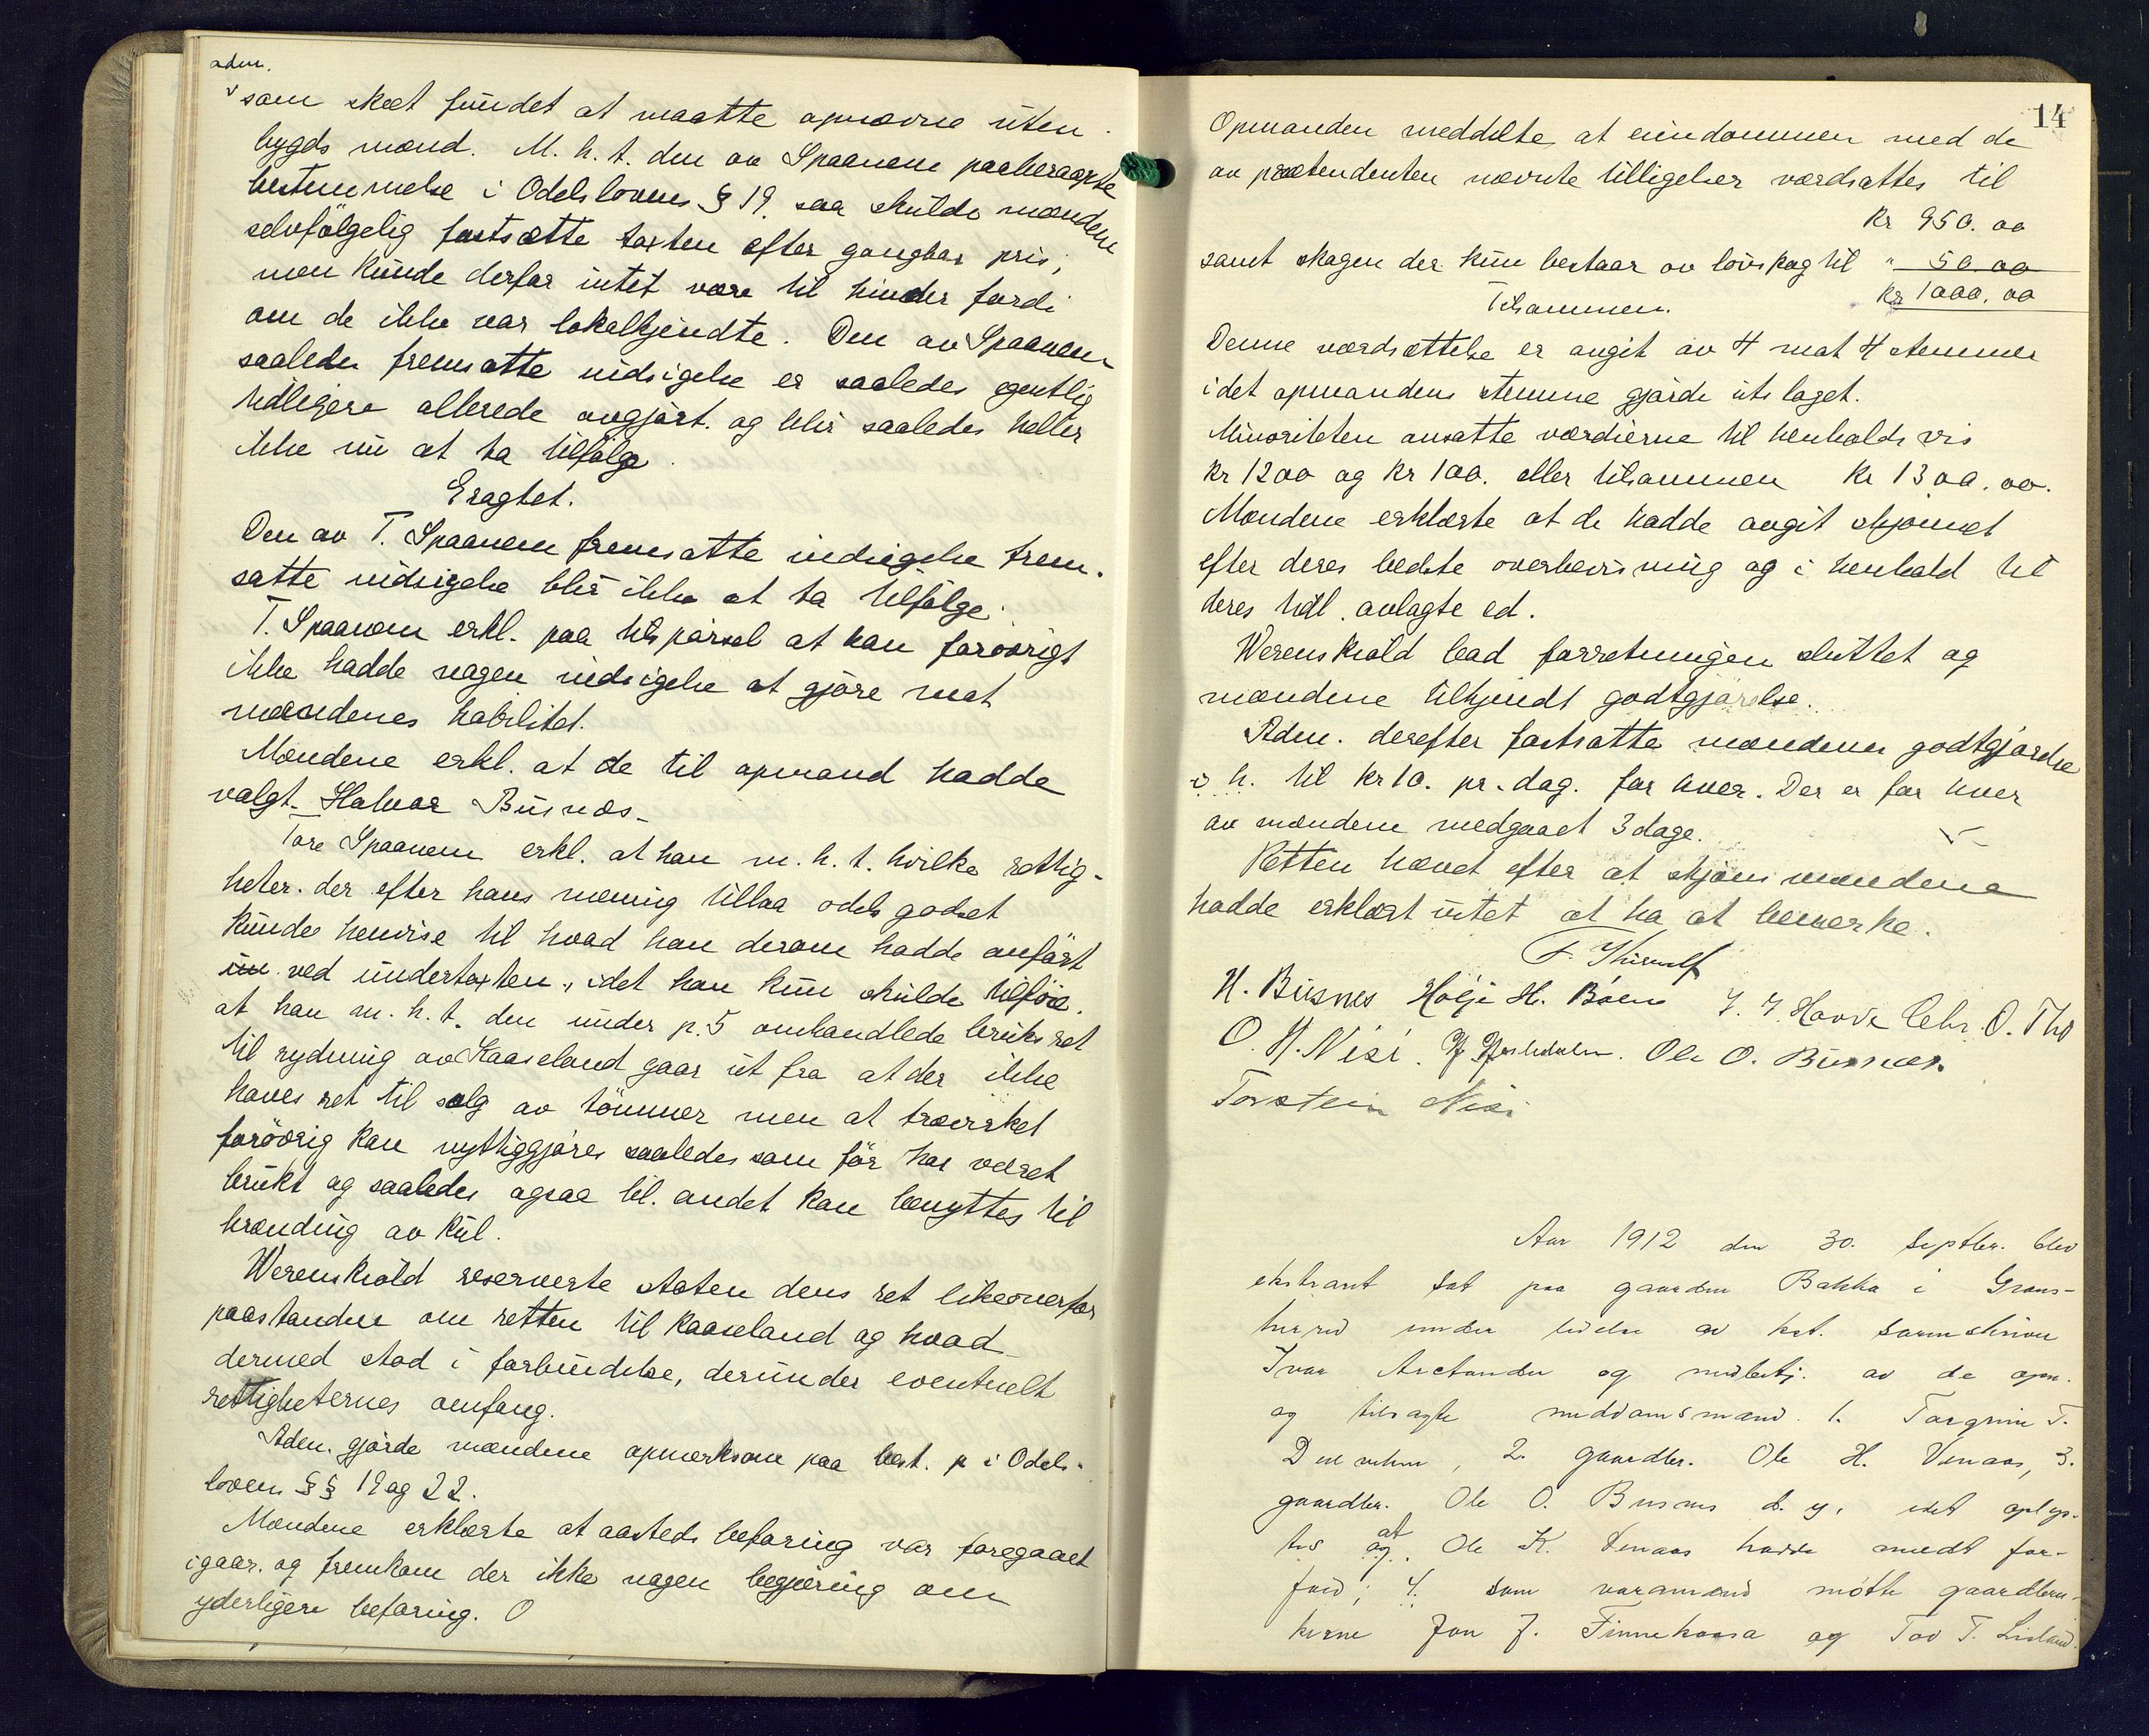 adm.
som sket fundet at maatte opnævne uten
bygds mænd. M. h. t. den av Spaanem paaberaapte
bestemmelse i Odelslovens § 19. saa skulde mændene
selvfölgelig fastsætte taxten efter gangbar pris,
men kunde derfor intet være til hinder fordi
om de ikke var lokalkjendte. Den av Spaanem
saaledes fremsatte indsigelse er saaledes egentlig
tidligere allerede avgjört. og blir saaledes heller
ikke nu at ta tilfölge.
Eragtet.
Den av T. Spaanem fremsatte indsigelse frem-
satte indsigelse blir ikke at ta tilfölge.
T. Spaanem erkl. paa tilspörsel at han forövrigt
ikke hadde nogen indsigelse at gjöre mot
mændenes habilitet.
Mændene erkl. at de til opmand hadde
valgt Halvor Busnæs
Tore Spaanem erkl. at han m. h. t. hvilke rettig-
heter. der efter hans mening tillaa odelsgodset
kunde henvise til hvad han derom hadde anfört
ved undertaxten, idet han kun skulde tilföie.
at han m. h. t. den under p. 5 omhandlede bruksret
til rydning av Kaaseland gaar ut fra at der ikke
haves ret til salg av tömmer men at trævirket
forövrig kan nyttiggjöres saaledes som för har været
brukt og saaledes ogsaa bl. andet kan benyttes til
brænding av kul.
Werenskiold reserverte staten dens ret likeoverfor
paastanden om retten til Kaaseland og hvad
dermed stod i forbindelse, derunder eventuelt
rettigheternes omfang.
Adm. gjorde mændene opmerksom paa best. i Odels-
lovens §§ 19 og 22.
Mændene erklærte at aasteds befaring var foregaaet
igaar. og fremkom der ikke nogen begjæring om
yderligere befaring.
14
Opmanden meddelte, at eiendommen med de
av prætendenten nævnte tilligelser værdsattes til
Kr 950. 00
samt skogen der kun bestaar av lövskog til " 50 00
Tilsammen. Kr 1000. 00
Denne værdsættelse er avgit av 4 mot 4 stemmer
idet opmandens stemme gjorde utslaget.
Minoriteten ansatte værdierne til henholdsvis
Kr 1200 og Kr 100. eller tilsammen Kr 1300. 00.
Mændene erklærte at de hadde avgit skjønnet
efter deres bedste overbevisning og i henhold til
deres tidl. avlagte ed.
Werenskiold bad forretningen sluttet og
mændene tilkjendt godtgjörelse.
Adm. derefter fastsatte mændenes godtgjörelse
i h. til Kr 10. pr. dag. for hver. Der er for hver
av mændene medgaaet 3 dage.
Retten hævet efter at skjönsmændene
hadde erklært intet at ha at bemerke.
H. Busnes Hölje H. Böen
O. H. Nisi. Ole O. Busnes.
Torstein Nisi
Aar 1912 den 30. septbr. blev
ekstraret sat paa gaarden Bakka i Grans-
herred under ledelse av kst. sorenskriver
Ivar Arctander og medbetj. av de opn.
og tilsagte meddomsmænd. 1. Torgrim T.
2. gaardbr. Ole H. Venaas, 3.
gaardbr. Ole O. Busnes d. y. idet oplys-
tes at Ole K. Venaas hadde meldt for-
fald; 4. som varamænd mötte gaardbru-
kerne Jon J. Finnekaasa og Tov T. Lisland.